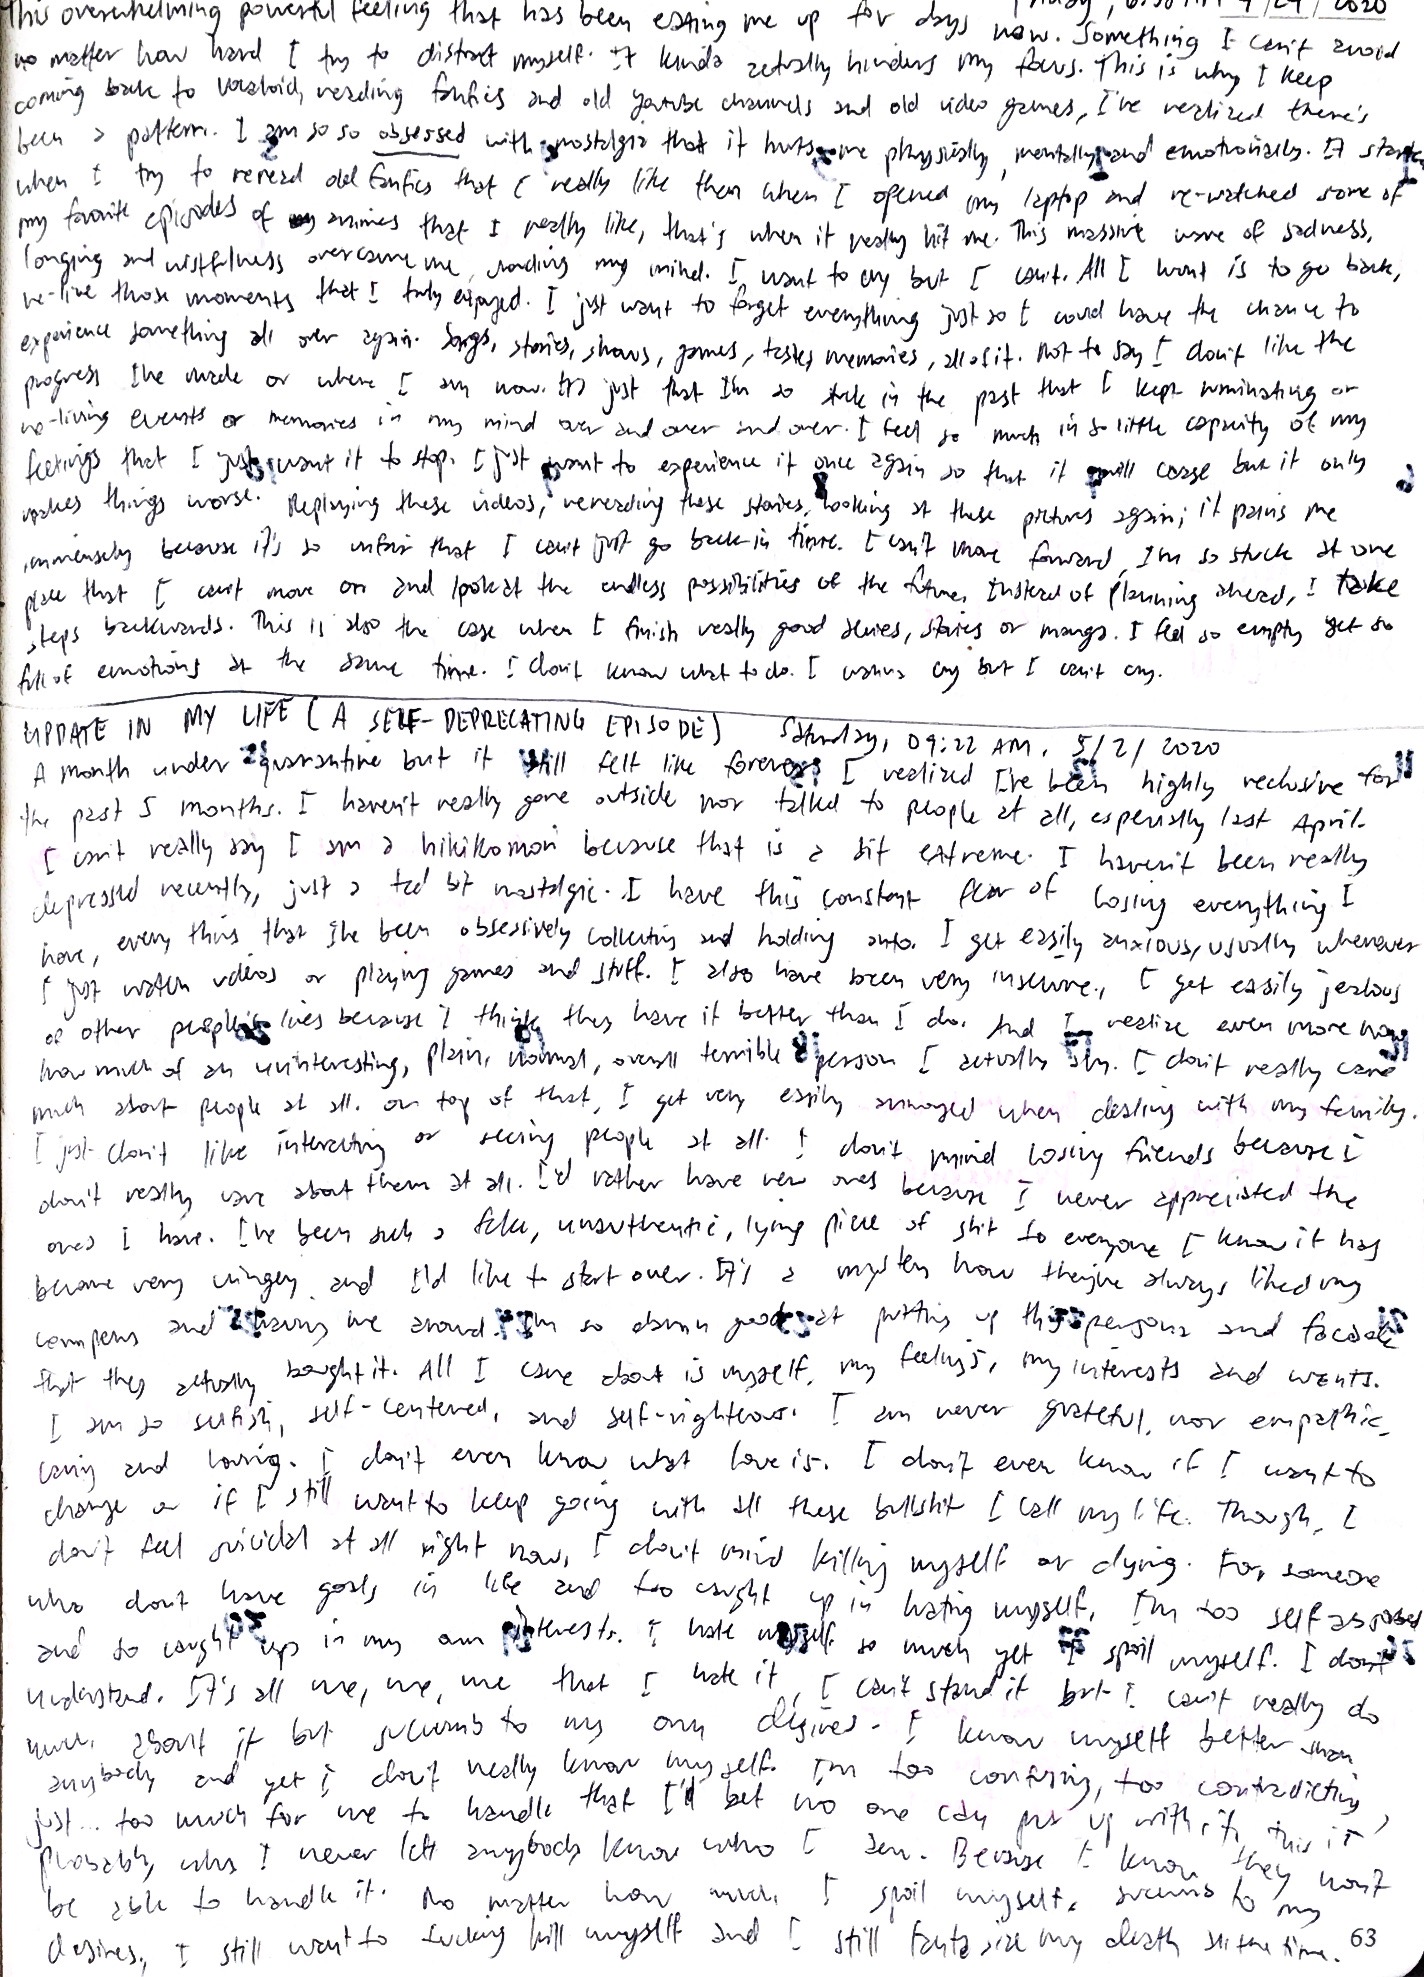 This overwhelming powerful feeling that has been eating me up for days now. Something I can't avoid
no matter how hard I try to distract myself. It kinda actually hinders my focus. This is why I keep
coming back to vocaloid, reading fanfics and old youtube channels and old video games, I've realized there's
been a pattern. I am so so obsessed with nostalgia that it hurts me physically, mentally and emotionally. It started
when I try to reread old fanfics that I really like then when I opened my laptop and re-watched some of
my favorite episodes of animes that I really like, that's when it really hit me. This massive wave of sadness,
longing and wistfulness overcame me, my mind. I want to cry but I can't. All I want is to go back,
re-live those moments that I truly enjoyed. I just want to forget everything just so I could have the chance to
experience something all over again. Songs, stories, shows, games, tastes, memories, all of it. Not to say I don't like the
progress I've made or where I am now. It's just that I'm so stuck in the past that I kept ruminating or
re-living events or memories in my mind over and over and over. I feel so much in so little capacity of my
feelings that I just want it to stop. I just want to experience it once again so that it will cease but it only
makes things worse. Replaying these videos, rereading these stories, looking at these pictures again; it pains me
immensely because it's so unfair that I can't just go back in time. I can't move forward, I'm so stuck at one
place that I can't move on and look at the endless possibilities of the future. Instead of planning ahead, I take
steps backwards. This is also the case when I finish really good series, stories or manga. I feel so empty yet so
full of emotions at the same time. I don't know what to do. I wanna cry but I can't cry.
UPDATE IN MY LIFE (A SELF-DEPRECATING EPISODE) Saturday, 09:22 AM. 5/2/2020
A month under quarantine but it still felt like forever. I realized I've been highly reclusive for
the past 5 months. I haven't really gone outside nor talked to people at all, especially last April.
I can't really say I am a hikikomori because that is a bit extreme. I haven't been really
depressed recently, just a tad bit nostalgic. I have this constant fear of losing everything I
have, every thing that I've been obsessively collecting and holding onto. I get easily anxious, usually whenever
I just watch videos or playing games and stuff. I also have been very insecure, I get easily jealous
of other people's lives because I think they have it better than I do. And I realize even more now
how much of an uninteresting, plain, normal, overall terrible person I actually am. I don't really care
much about people at all. On top of that, I get very easily annoyed when dealing with my family.
I just don't like interacting or seeing people at all. I don't mind losing friends because I
don't really care about them at all. I'd rather have new ones because I never appreciated the
ones I have. I've been such a fake, unauthentic, lying piece of shit to everyone I know it has
become very cringey and I'd like to start over. It's a mystery how they've always liked my
company and having me around. I'm so damn good at putting up this persona and facade
that they actually bought it. All I care about is myself, my feelings, my interests and wants.
I am so selfish, self-centered, and self-righteous. I am never grateful, nor empathic,
caring and loving. I don't even know what love is. I don't even know if I want to
change or if I still want to keep going with all these bullshit I call my life. Though, I
don't feel suicidal at all right now, I don't mind killing myself or dying. For someone
who don't have goals in life and too caught up in hating myself, I'm too self-absorbed
and so caught up in my own interests. I hate myself so much yet I spoil myself. I don't
understand. It's all me, me, me that I hate it, I can't stand it but I can't really do
much about it but succumb to my own desires. I know myself better than
anybody and yet I don't really know myself. I'm too confusing, too contradicting,
just... too much for me to handle that I'd bet no one can put up with it, this is
probably why I never let anybody know who I am. Because I know they won't
be able to handle it. No matter how much I spoil myself, succumb to my
desires, I still want to fucking kill myself and I still fantasize my death all the time. 63